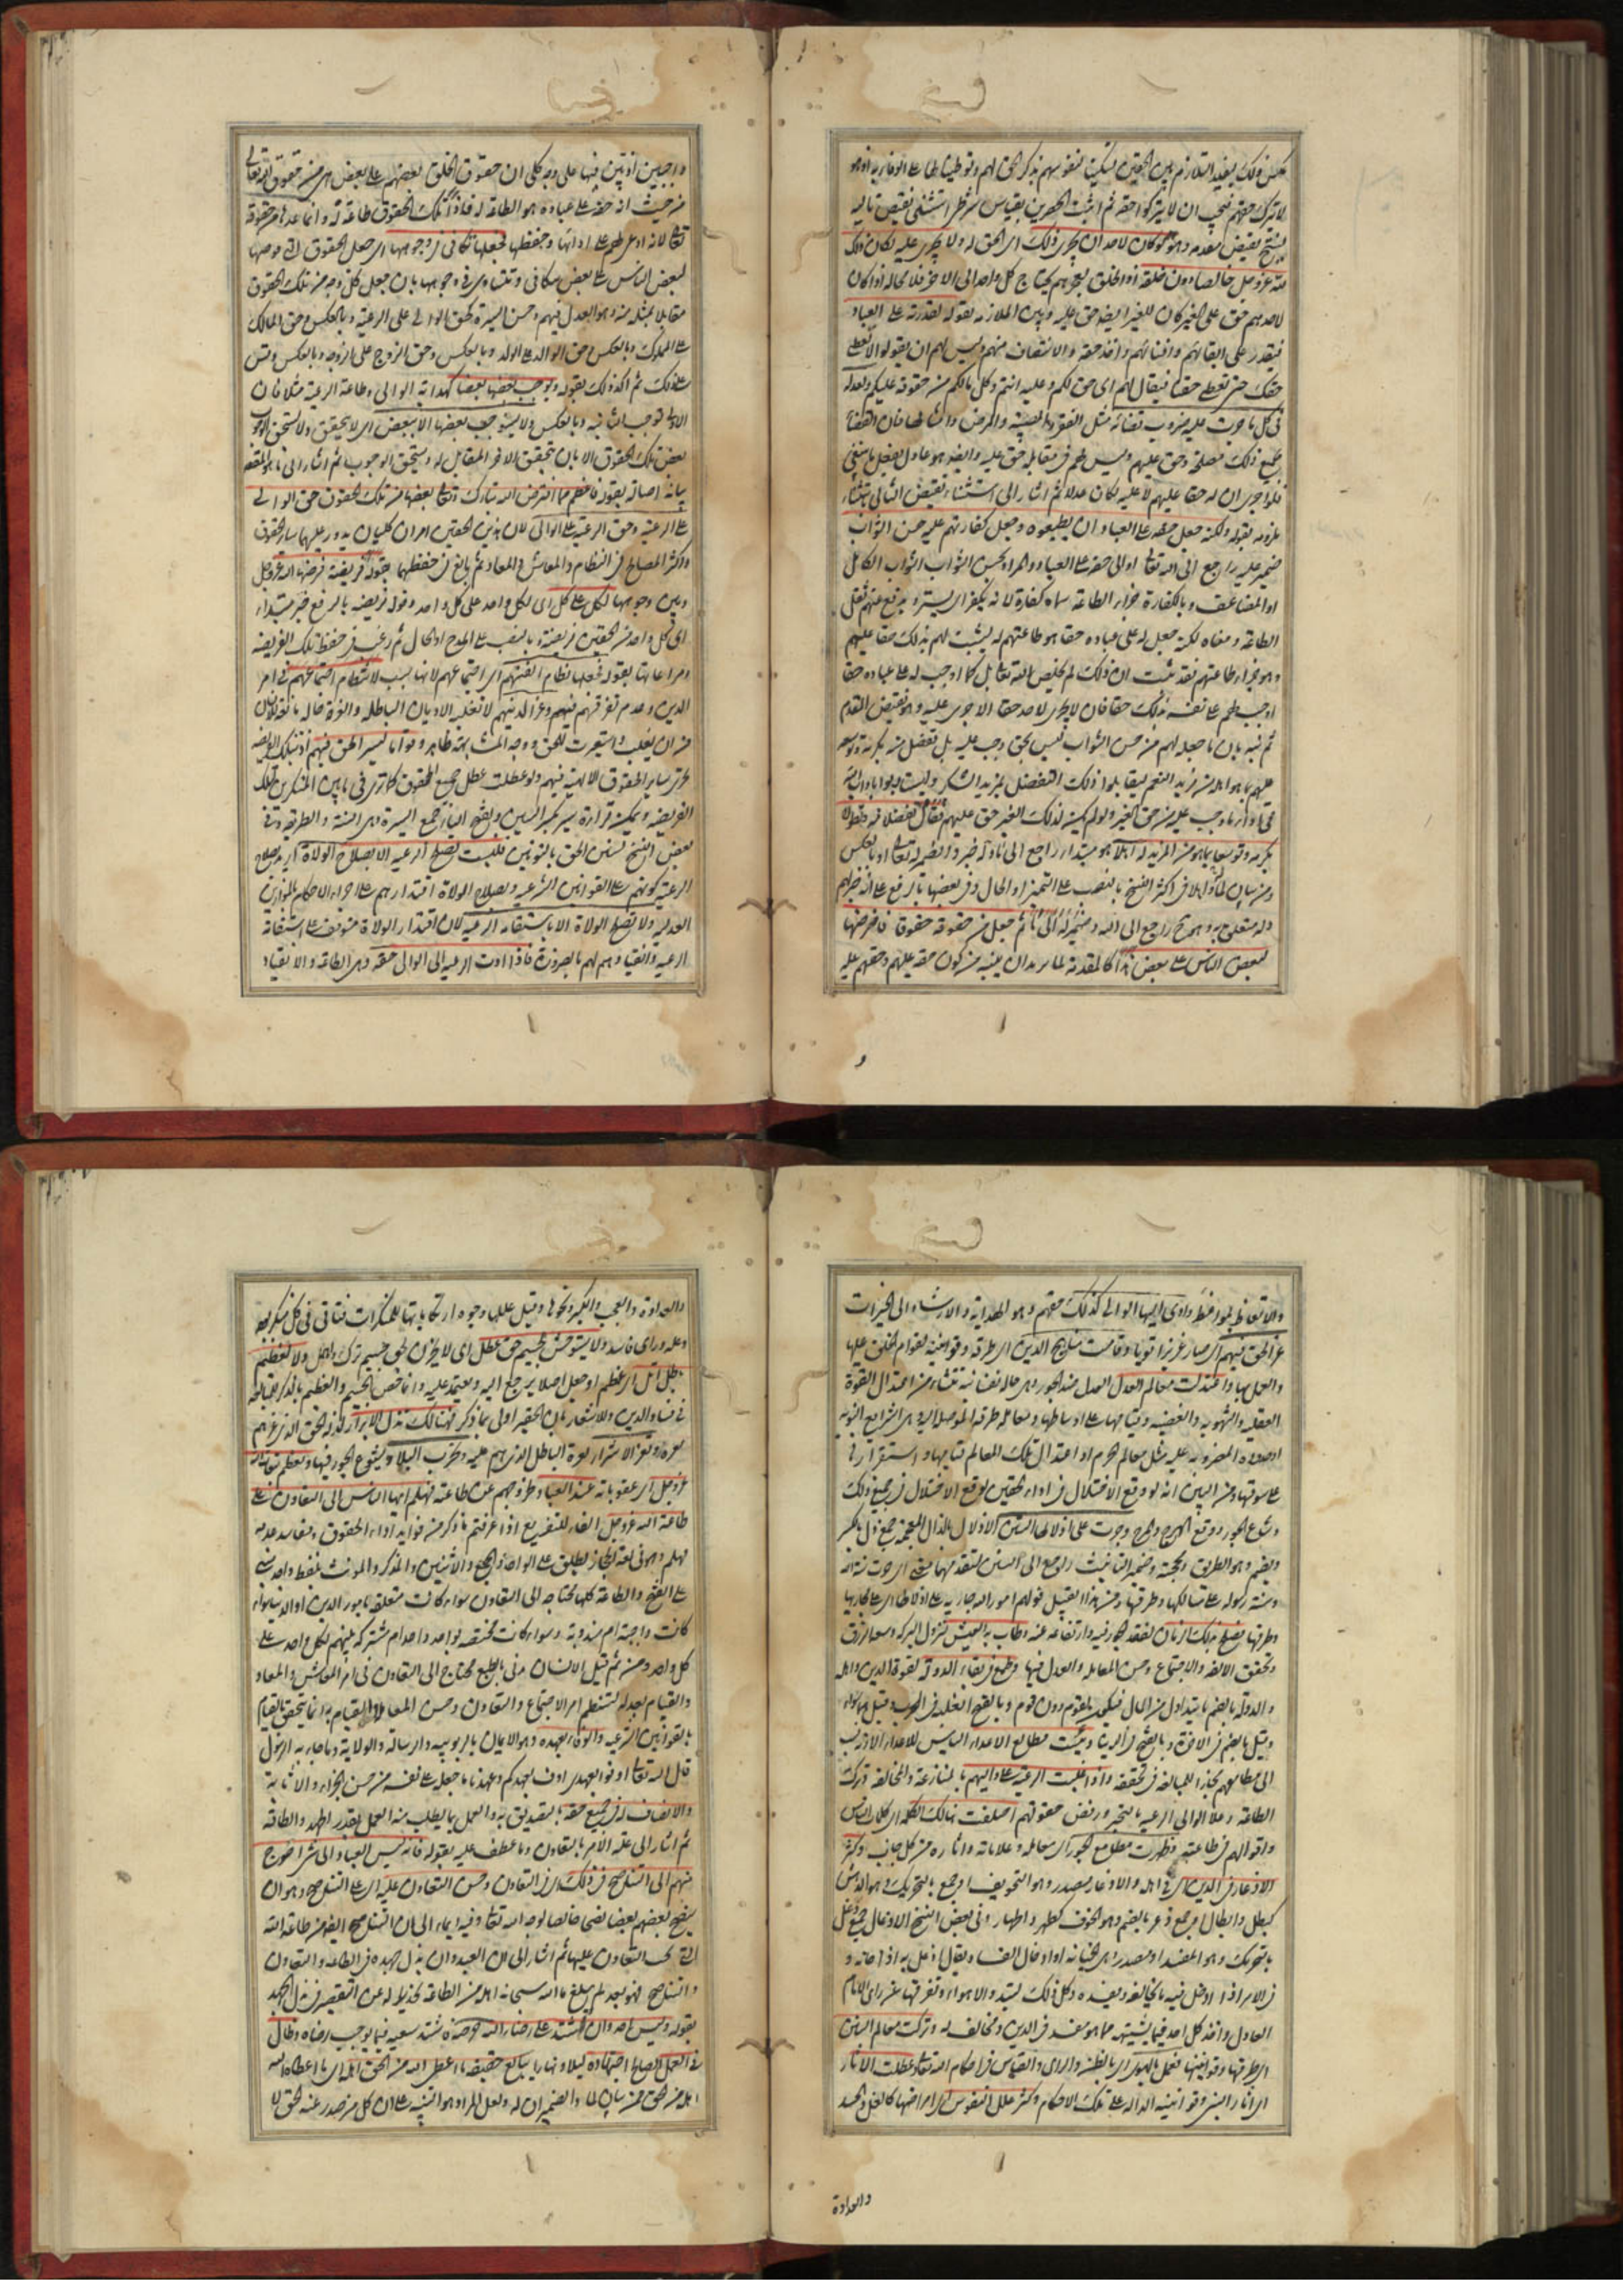 ذلك يفيد التلازم بين الحقين تسكينا لنفوسهم بذكر الحق لهم وتوطينا لها على الوفاء به اذ هو
لا يترك حقهم فيجب ان لا يتركوا حقه ثم اثبت الحقين بقياس شرطي استثنى نقيض تاليه
لينتج نقيض مقدمه وهو لو كان لاحد ان يجرى ذلك اى الحق له ولا يجرى عليه لكان ذلك
لله عز وجل خالصا دون خلقه اذ الخلق لعجزهم يحتاج كل واحد الى الاخر فلا محالة اذا كان
لاحدهم حق على الغير كان للغير ايضا حق عليه وبين الملازمة بقوله لقدرته على العباد
فيقدر على ابقائهم وافنائهم واخذ حقه والانتصاف منهم وليس لهم ان يقولوا لا نعطى
حقك حتى تعطى حقنا فيقال لهم اى حق لكم وعليه انتم وكل مالكم من حقوقه عليكم ولعدله
فى كل ما جرت عليه ضروب قضائه مثل الفقر والمصيبة والمرض وامثالها فان القضاء
بجميع ذلك مصلحة وحق عليهم وليس لهم فى مقابله حق عليه وايضا هو عادل يفعل ما ينبغى
فلو اجرى ان له حقا عليهم لا عليه لكان عدلا ثم اشار الى استثناء نقيض التالى
بقوله ولكنه جعل حقه على العباد ان يطيعوه وجعل كفارتهم عليه حسن الثواب
ضمير عليه راجع الى الله تعالى او الى حقه على العباد والمراد بحسن الثواب الثواب الكامل
او المضاعف وبالكفارة جزاء الطاعة سماه كفارة لانه يكفر اى يستر ويدفع عنهم ثقل
الطاعة ومعناه لكنه جعل له على عباده حقا هو طاعتهم له ليثبت لهم بذلك حقا عليهم
وهو جزاء طاعتهم فقد ثبت ان ذلك لم يخلص لله تعالى بل كما اوجب له على عباده حقا
اوجب لهم على نفسه بذلك حقا فان لا يجرى لاحد حق الا جرى عليه وهو نقيض المقدم
ثم نبه بان ما جعله لهم من حسن الثواب ليس بحق وجب عليه بل تفضل منه بكرمه وتوسعه
عليهم بما هو اهله من مزيد النعم ليقابلوا ذلك التفضل بمزيد الشكر
ما وجب عليه من حق الغير ولو لم يكن لذلك الغير حق عليهم فقال تفضلا منه وتطولا
بكرمه وتوسعا بما هو من المزيد له اهلا هو مبتدأ راجع الى ما وله خبر والضمير له تعالى او بالعكس
ومن بيان لما واهلا فى اكثر النسخ بالنصب على التميز او الحال وفى بعضها بالرفع على انه خبر لهم
وله متعلق به وهو ح راجع الى الله وضمير له الى ما ثم جعل من حقوقه حقوقا فافترضها
لبعض الناس على بعض هذا كالمقدمة لما يريد ان يبينه من كون حقه عليهم وحقهم عليه
و
واجبين اذ بين فيها على وجه كلى ان حقوق الخلق بعضهم على بعض هى من حقوق الله تعالى
من حيث ان حقه على عباده هو الطاعة له فاداء تلك الحقوق طاعة له وانما عدها من حقوقه
تعالى لانه اوعدهم على ادائها وحفظها فجعلها تتكافى فى وجوهها اى جعل الحقوق التى فرضها
لبعض الناس على بعض تتكافى وتتساوى فى وجوهها بان جعل كل وجه من تلك الحقوق
مقابلا بمثله منه وهو العدل فيهم وحسن السيرة كحق الوالى على الرعية وبالعكس وحق المالك
على المملوك وبالعكس وحق الوالد على الولد وبالعكس وحق الزوج على الزوجة وبالعكس وقس
على ذلك ثم اكد ذلك بقوله ويوجب بعضها بعضا كهداية الوالى وطاعة الرعية مثلا فان
الاولى توجب الثانية وبالعكس ولا يستوجب بعضها الا ببعض اى لا يتحقق ولا يستحق الوجوب
بعض تلك الحقوق الا بان يتحقق الاخر المقابل له ويستحق الوجوب ثم اشار الى ما هو المقصد
بيانه اصالة بقوله فاعظم مما افترض الله تبارك وتعالى بعضها من تلك الحقوق حق الوالى
على الرعية وحق الرعية على الوالى لان هذين الحقين امران كليان يدور عليهما سائر الحقوق
واكثر المصالح فى النظام والمعاش والمعاد ثم بالغ فى حفظهما بقوله فريضة فرضها الله عز وجل
وبين وجوبها لكل على كل اى لكل واحد على كل واحد وقوله فريضة بالرفع خبر مبتداء
اى كل واحد من الحقين فريضة او بالنصب على المدح او الحال ثم رغب فى حفظ تلك الفريضة
ومراعاتها بقوله فجعلها نظام الفتهم اى اجتماعهم لانها سبب لانتظام اجتماعهم فى امر
الدين وعدم تفرقهم فيهم وعزا لدينهم لا تغلبه الاديان الباطلة والفرقة
من ان يغلب واستيعرت للحق ووجه المشابهة ظاهر وقواما لسير الحق فيهم اذ بتلك الفريضة
تجرى سائر الحقوق الالهية فيهم ولو عطلت عطل جميع الحقوق كما ترى فى ما بين المنكرين لتلك
الفريضة ويمكن قراءة سير بكسر السين وفتح الياء جمع السيرة وهى السنة والطريقة وفى
بعض النسخ لسنن الحق بالنونين فليست تصلح الرعية الا بصلاح الولاة اريد بصلاح
الرعية كونهم على القوانين الشرعية وبصلاح الولاة اقتدارهم على اجراء الاحكام بالموازين
العدلية ولا تصلح الولاة الا باستقامة الرعية لان اقتدار الولاة متوقف على استقامة
الرعية وانقيادهم لهم بالضرورة فاذا ادت الرعية الى الوالى حقه وهى الطاعة والانقياد
والاتعاظ بمواعظه وادى اليها الوالى كذلك حقهم وهو الهداية والارشاد الى الخيرات
عز الحق فيهم اى صار عزيزا قويا وقامت مناهج الدين اى طرقه وقوانينه لقوام الخلق عليها
والعمل بها واعتدلت معالم العدل العدل ضد الجور وهى حالة نفسانية تنشاء من اعتدال القوة
العقلية والشهوية والغضبية وقيامها على اوساطها ومعالمه طرقه الموصلة اليه وهى الشرايع النبوية
او حدوده المضروبة عليه مثل معالم الحرم او اعتدال تلك المعالم قيامها واستقرارها فى
على سوقها ومن البين انه لو وقع الاختلال فى اداء الحقين لوقع الاختلال فى جميع ذلك
وشاع الجور ووقع الهرج والمرج وجرت على اذلالها السنن الاذلال بالذال المعجمة جمع ذل بالكسر
ويضم وهو الطريق ومحجته وضمير التانيث راجع الى السنن لتقدمها معنى اى جرت سنة الله
وسنة رسوله على مسالكها وطرقها ومن هذا القبيل قولهم امور الله جارية على اذلالها اى على مجاريها
وطرقها فصلح بذلك الزمان لفقد الجور فيه وارتفاعه عنه وطاب به العيش لنزول البركة وسعة الرزق
وتحقق الالفة والاجتماع وحسن المعاملة والعدل فيها وطمع فى بقاء الدولة لقوة الدين واهله
والدولة بالضم ما يتداول من المال فيكون لقوم دون قوم وبالفتح الغلبة فى الحرب وقيل هما سواء
وقيل بالضم فى الاخرة وبالفتح فى الدنيا ويئست مطامع الاعداء الياس للاعداء لا
الى مطامعهم مجازا للمبالغة فى تحققه واذا غلبت الرعية على واليهم بالمنازعة والمخالفة وترك
الطاعة وعلا الوالى الرعية بالتجبر ورفض حقوقهم اختلفت هنالك الكلمة اى كلمة الناس
واقوالهم فى طاعته وظهرت مطامع الجور اى معالمه وعلاماته واثاره من كل جانب وكثر
الادغار فى الدين اى فى اهله والادغار مصدر وهو التخويف او جمع بالتحريك وهو الدهش
كبطل وابطال او جمع ذعر بالضم وهو الخوف كطهر واطهار وفى بعض النسخ الادغال جمع دغل
بالتحريك وهو المفسد او مصدر اى الخيانة او ادخال الفساد يقال ادغل به اذا خانه و
فى الامر اذا ادخل فيه ما يخالفه ويفسده وكل ذلك لشدة الاهواء وتفرقها عن راى الامام
العادل واخذ كل احد فيما يشتهيه مما هو مفسد فى الدين ومخالف له وتركت معالم السنن
اى طرقها وقوانينها فعمل بالهوى اى بالظن والراى والقياس فى احكام الله تعالى وعطلت الاثار
اى اثار السنن وقوانينه الدالة على تلك الاحكام وكثر علل النفوس اى امراضها كالغل والحسد
والعداوة
والعداوة والعجب والكبر ونحوها وقيل عللها وجوه ارتكابها للمنكرات فتاتى فى كل منكر بوجه
وعلة وراى فاسد ولا يستوحش لجسيم حق عطل اى لا يحزن لحق جسيم ترك واهمل ولا لعظيم
باطل اثل اى عظم او جعل اصلا يرجع اليه ويعتمد عليه وانما خص الجسيم والعظيم بالذكر للمبالغة
فى فساد الدين وللاشعار بان الحقير اولى بما ذكر فهنالك تذل الابرار لذلة الحق الذى عزهم
بعزه وتعز الاشرار بعزة الباطل الذى هم عليه وتخرب البلاد لشيوع الجور فيها وتعظم تبعات الله
عز وجل اى عقوباته عند العباد وخروجهم عن طاعته فهلم ايها الناس الى التعاون على
طاعة الله عز وجل الفاء للتفريع اذا عرفتم ما ذكر من فوايد اداء الحقوق ومفاسد عدمه
فهلم وهو فى لغة الحجاز يطلق على الواحد والجمع والاثنين والمذكر والمونث بلفظ واحد مبنى
على الفتح والطاعة كلها محتاجة الى التعاون سواء كانت متعلقة بامور الدين او الدنيا وسواء
كانت واجبة ام مندوبة وسواء كانت مختصة بواحد واحد ام مشتركة فيهم لكل واحد على
كل واحد ومن ثم قيل الانسان مدنى بالطبع محتاج الى التعاون فى امر المعاش والمعاد
والقيام بعدله لتنتظم امر الاجتماع والتعاون وحسن المعاملة والقيام به انما يتحقق بالقيام
بالقوانين الشرعية والوفاء بعهده وهو الايمان بالربوبية والرسالة والولاية وما جاء به الرسول
قال الله تعالى اوفوا بعهدى اوف بعهدكم وعهدنا ما جعله على نفسه من حسن الجزاء والاثابة
والانصاف له فى جميع حقه بالتصديق به والعمل بما يطلب منه العمل بقدر الجهد والطاقة
ثم اشار الى علة الامر بالتعاون وما عطف عليه بقوله فانه ليس العباد الى شىء احوج
منهم الى التناصح فى ذلك اى فى التعاون وحسن التعاون عليه اى على التناصح وهو ان
ينصح بعضهم بعضا نصحا خالصا لوجه الله تعالى وفيه ايماء الى ان التناصح ايضا من طاعة الله
التى يجب التعاون عليها ثم اشار الى ان العبد وان بذل جهده فى الطاعة والتعاون
والتناصح فهو بعد لم يبلغ ما الله سبحانه اهله من الطاعة تحذيرا له عن التقصير فى بذل الجهد
بقوله وليس احد وان اشتد على رضاء الله حرصه شتد سعيه فيما يوجب رضاه وطال
فى العمل الصالح اجتهاده ليلا ونهارا ببالغ حقيقة ما اعطى الله من الحق اهله اى ما اعطاه الله
اهله من الحق من بيان لما والضمير ان له ولعل المراد هو التنبيه على ان كل من صدر عنه الحق لا